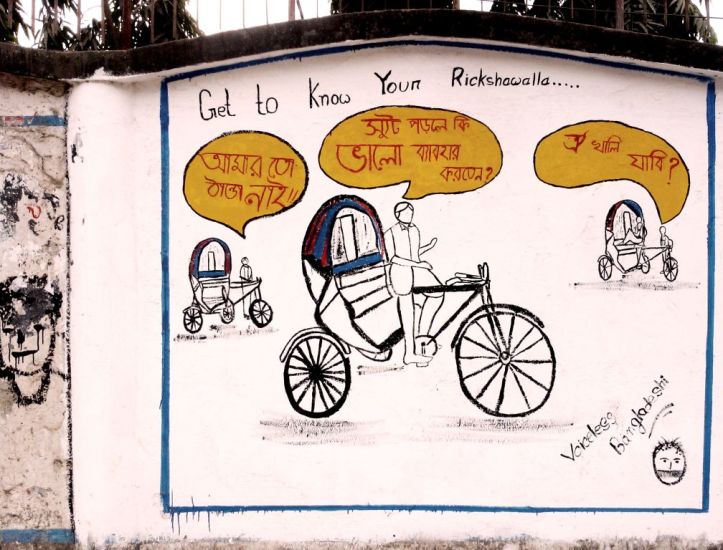 Get to Know Your Rickshawalla.....
আমার তো
ঠান্ডা নাই!!
স্যুট পড়লে কি
ভালো ব্যবহার
করতেন?
ঐ খালি
যাবি?
Voiceless
Bangladeshi